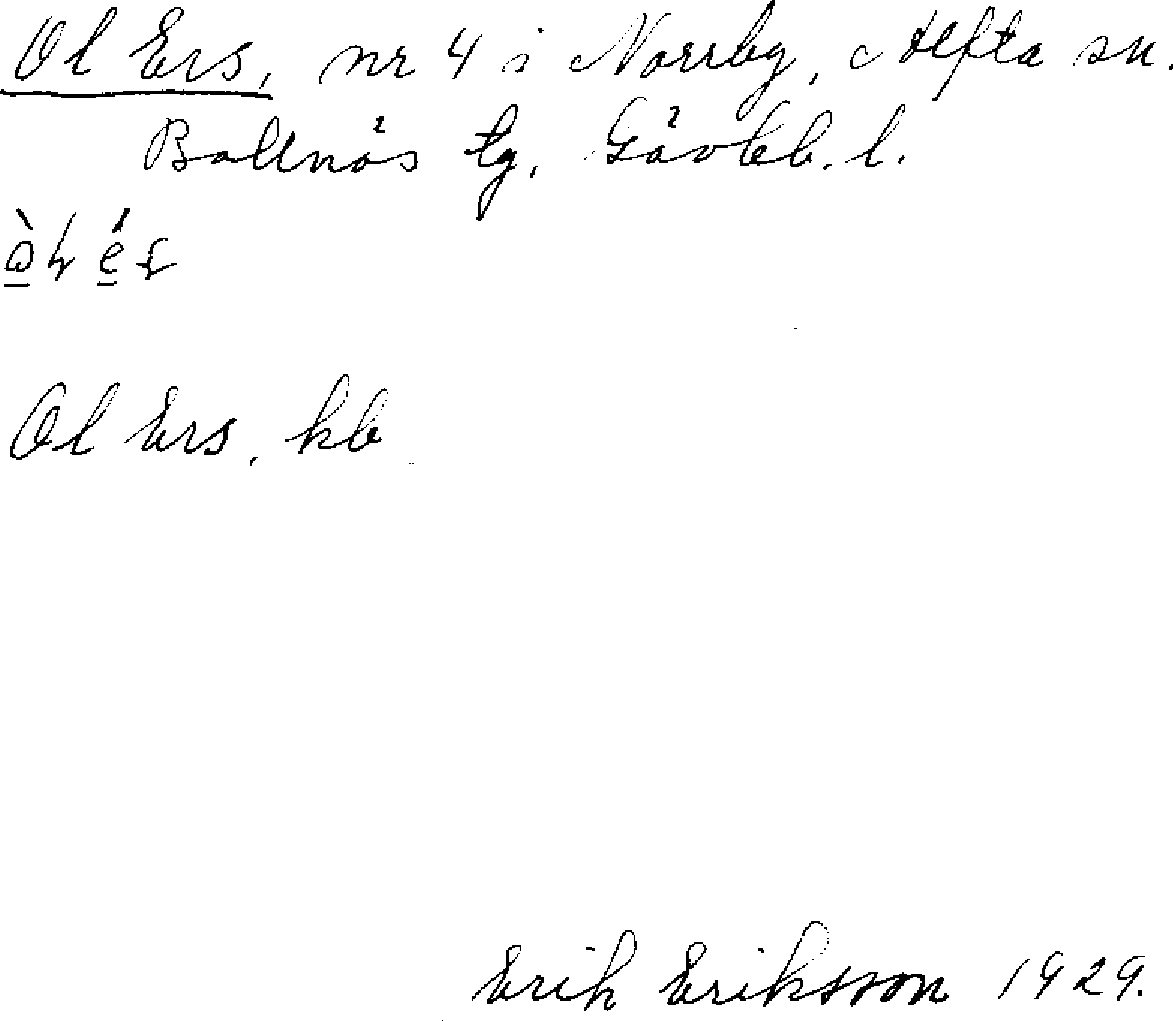 Ol Ers, nr 4 i Norrby, Alfta sn.
Bollnäs tg, Gävleb. l.
Ol Ers, kb
Erik Eriksson 1929.